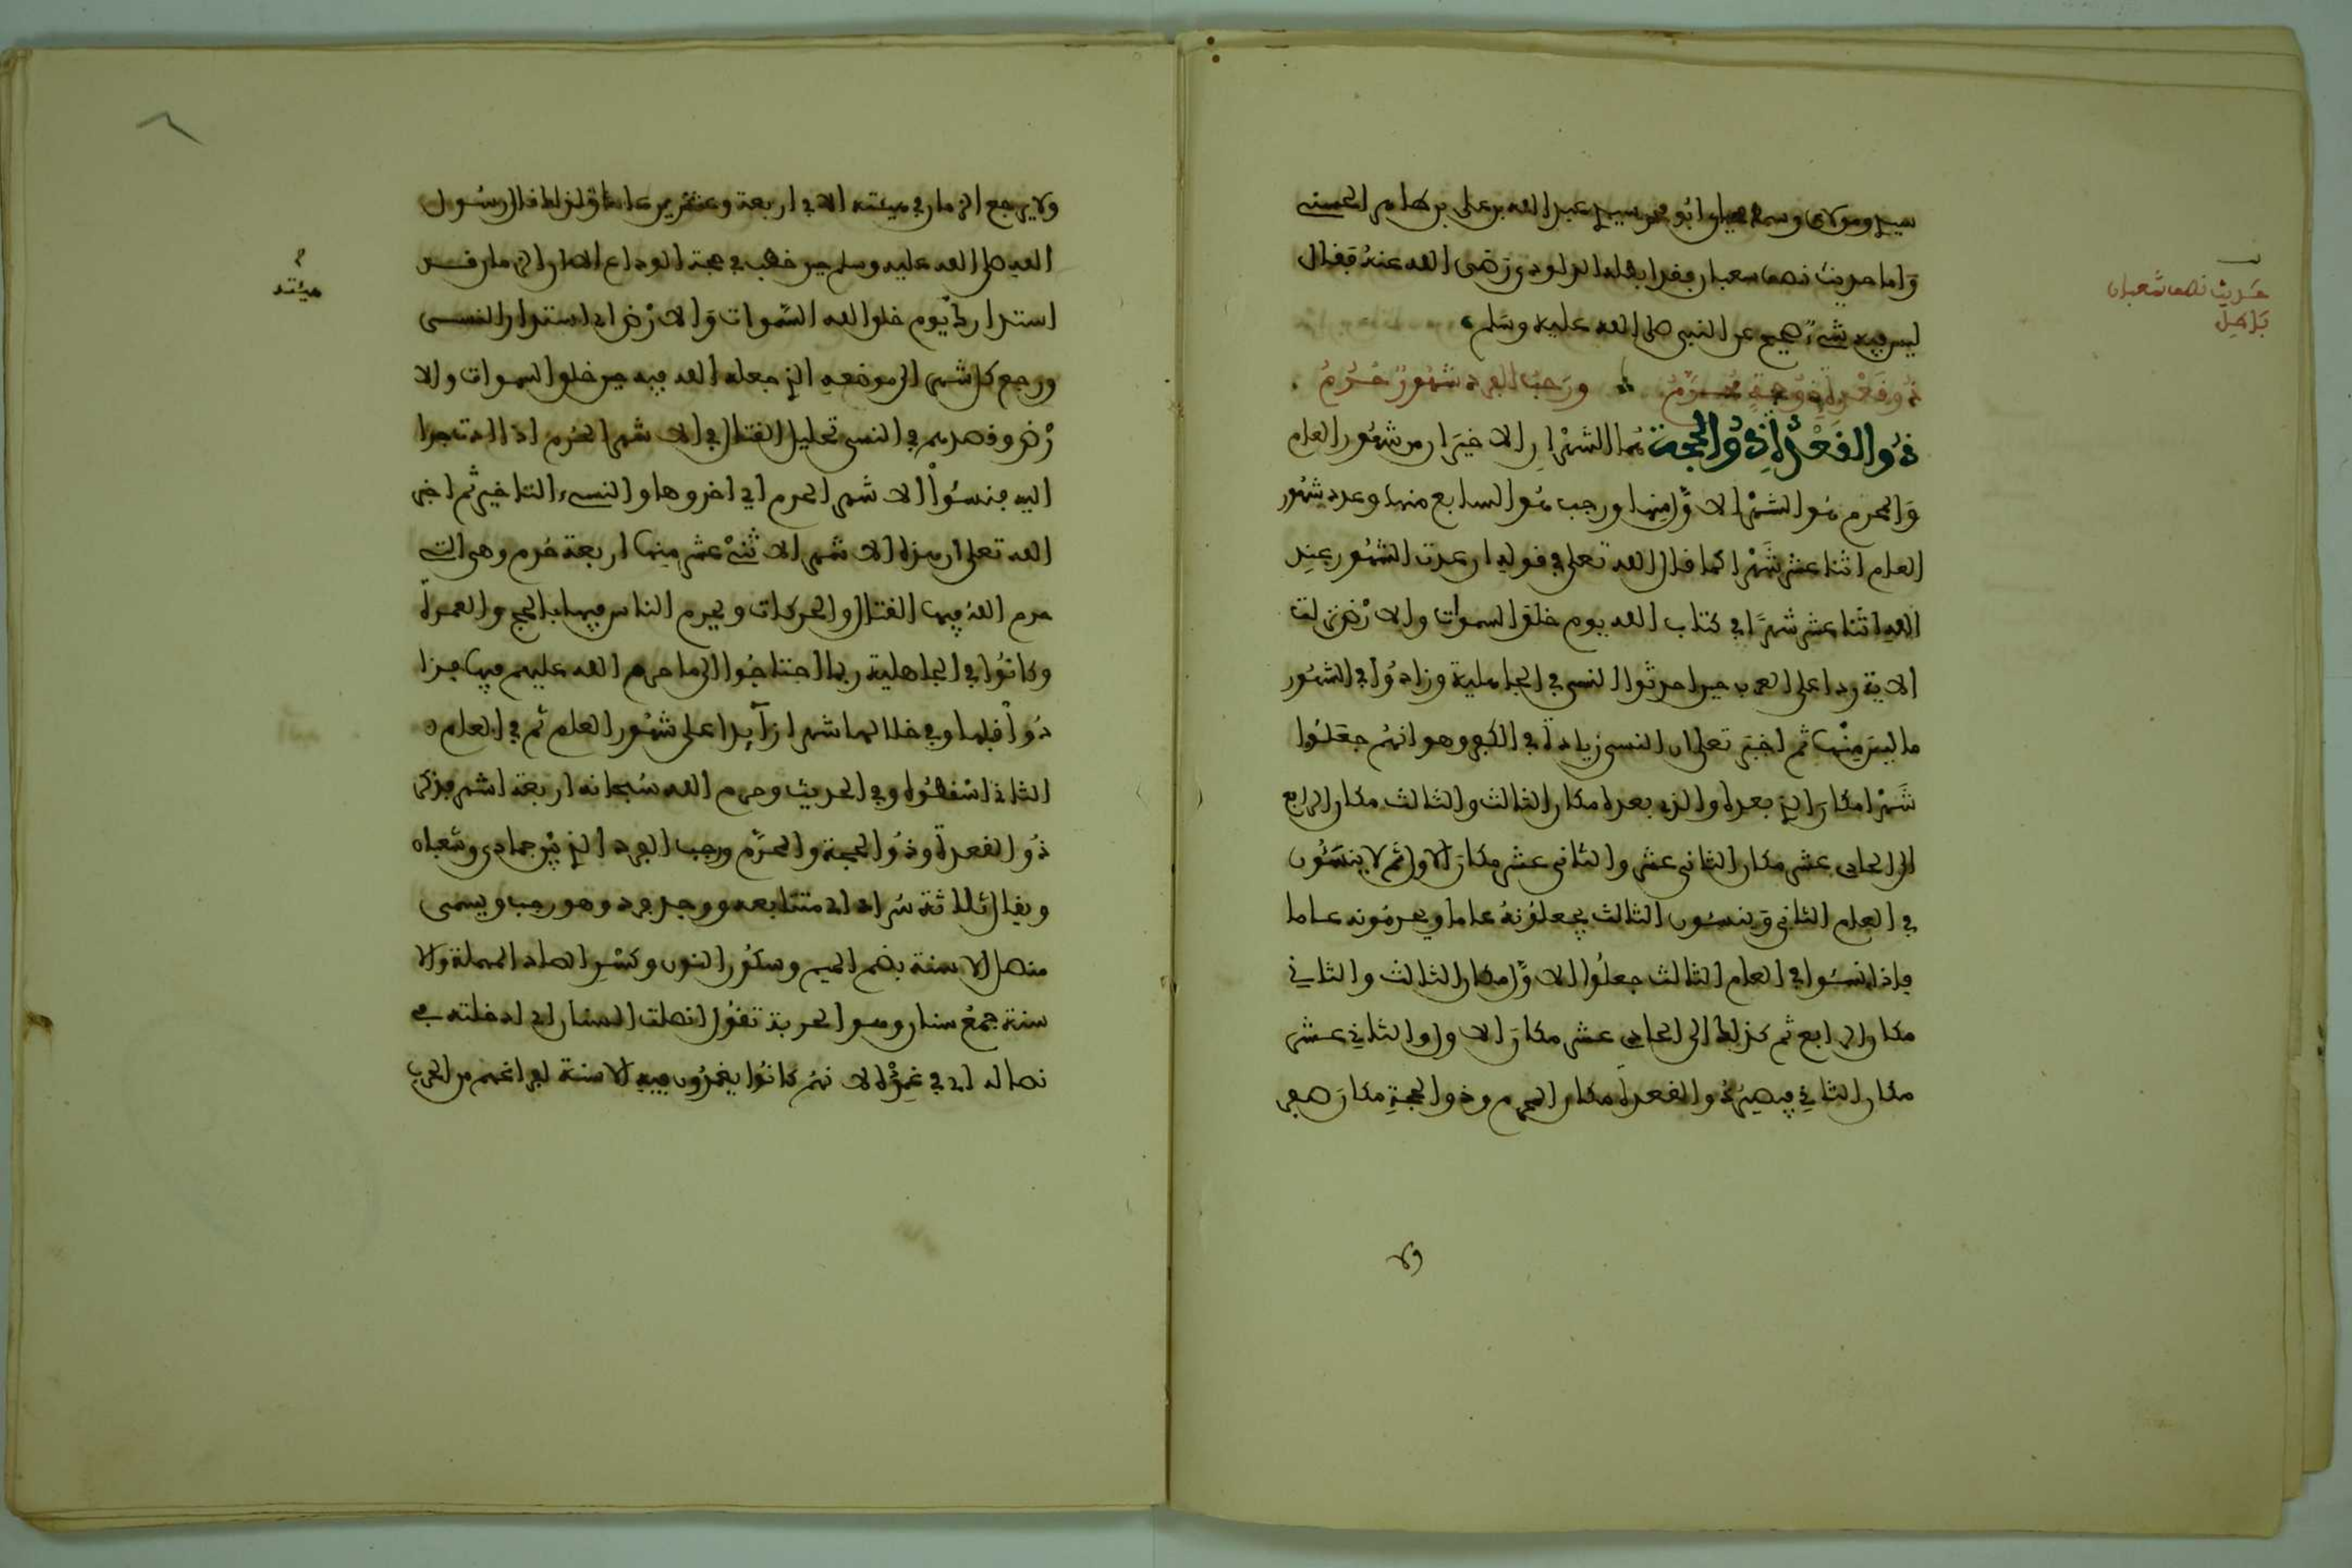 سيدي ومولاي وسمط ابو محمد سيدي عبد الله بن على بن طاهر الحسنى
وَاما حديث نصف سعبان فقد ابطله الداودي رَضى الله عنهُ فقال
ليس فيه شئ صحيح عن النبى صلى الله عليه وسَلم
حَديث نصف شعبان
بَاطِل
ذُو قَعْدَةٍ ذُو حِجةٍ مُحَرَّمُ ورَجبُ الفرد شهُورٌ حُرُمُ
ذُوا القَعْدَةِ ذُو الحجة هُما الشهْرانِ الاخيرَان من شهُور العام
وَالمحرم هُو الشهْر الاوَّل منها ورجب هُو السابع منها وعدد شهُور
العام اثنا عشر شَهْرا كما قال الله تعلى في قوله ان عدت الشهُور عِند
اللهِ اثنا عشر شهرًا في كتاب الله يوم خلق السموات والارْض نزلت
الاية ردا على العرب حين احدثوا النسى في الجاهلية وزادُوا في الشهُور
ما ليسَ مِنْها ثم اخبَر تعلى ان النسى زيادةٌ في الكفر وهو انهُم جعَلوا
شَهْرا مكانَ الذي بعده والذي بعده مكان الثالث والثالث مكان الرابع
الى الحادى عشر مكان الثانى عشر والثانى عشر مكانَ الاول ثم لا ينسَئُون
في العام الثانى وَينسئون الثالث يجعلُونهُ عاما ويحرمُونه عاما
فاذا نسَئوا في العام الثالث جعلُوا الاوَّل مكان الثالث والثاني
مكان الرابع ثم كذلك الى الحادى عشر مكانَ الاول والثاني عشر
مكان الثاني فيصيرُ ذُو القعدة مكان المحرم وذو الحجةِ مكانَ صفر
ولا
ولا يرجع الزمان في هيئته الا في اربعة وعشرين عاما وَلذلك قال رسُول
اللهِ صلى الله عليه وسلم حين خطب في حجة الوداع الا ان الزمان قد
هيئته
استدار كيَوم خلق الله السَّموات وَالارْض اي استدار النسى
ورجع كل شهر الى موضعه الذي جعله الله فيه حين خلق السموات والا
رْض وقصدهم في النسى تحليل القتال في الاشهر الحُرم اذا احتاجوا
اليه فينسئُوا الاشهر الحرم اي اخروها والنسىء التاخير ثم اخبر
الله تعلى ان هذه الاشهر الاثنَىْ عشر مِنها اربعة حُرم وهى التي
حرم اللهُ فيها القتال والحركات ويحرم الناس فيها بالحج والعمرة
وكانُوا في الجاهلية ربما احتاجُوا الى ما حرم الله عليهم فيها فزا
دُوا قبلها وفي خلالها شهرا زآيدا على شهُور العام ثم في العام
الثانى اسْقطُوه وفي الحديث وحرم الله سُبحانه اربعة اشهر فذكر
ذُو القعدة وذُو الحجة والمحرَّم ورجب الفرد الذي بيْن جمادى وشعبان
ويقال ثلاثة سُرد اي متتابعة وواحد فرد وهو رجب ويسمى
منصل الاسنة بضم الميم وسكُون النون وكسْر الصاد المهملة والا
سنة جمعُ سنان وهو الحربة تقُول انصلت السنان اي ادخلته في
نصاله اي في غِمْده لانهُم كانُوا يغمدُون فيهِ الاسنة لفراغهم من الحرب